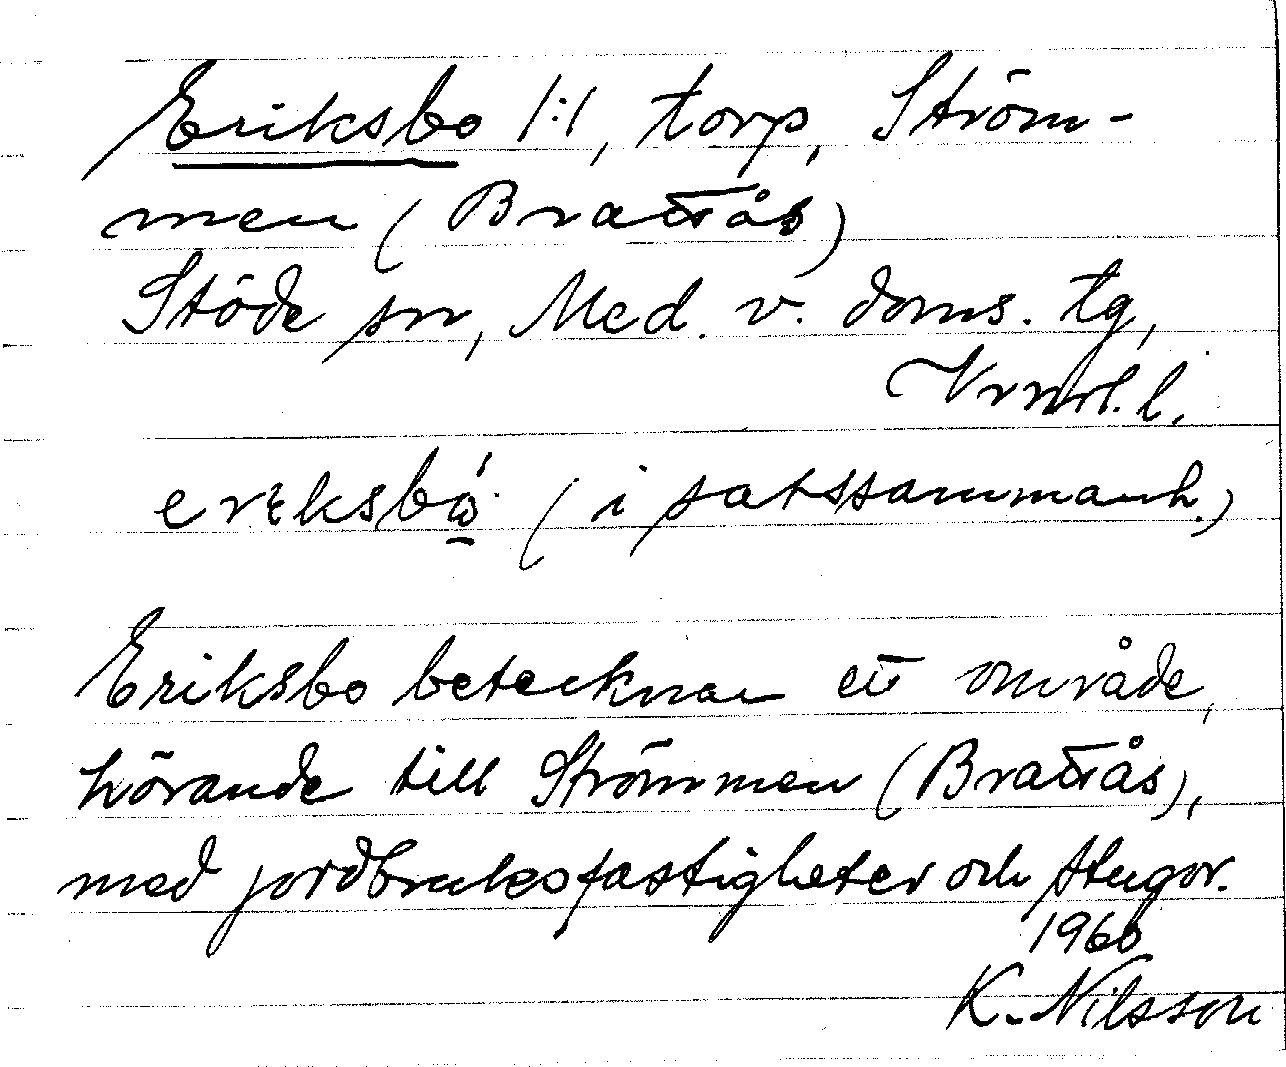 Eriksbo 1:1, torp, Ström-
men (Brattås)
Stöde sn, Med. v. doms. tg,
Vrnrl. l.
(i satssammanh.)
Eriksbo betecknar ett område,
hörande till Strömmen (Brattås),
med jordbruksfastigheter och stugor.
1960
K. Nilsson